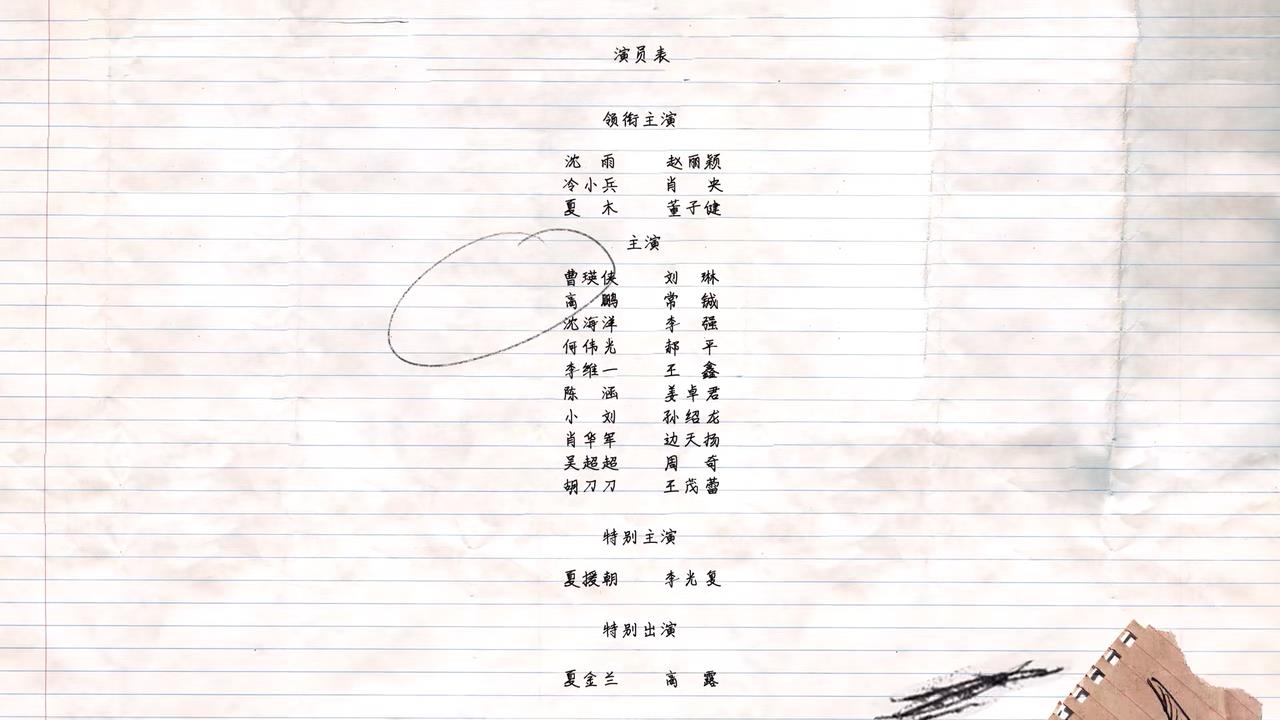 演员表
领衔主演
沈雨 赵丽颖
冷小兵 肖央
夏木 董子健
主演
曹瑛侠 刘琳
高鹏 常铖
沈海洋 李强
何伟光 郝平
李维一 王鑫
陈涵 姜卓君
小刘 孙绍龙
肖华军 边天扬
吴超超 周奇
胡刀刀 王茂蕾
特别主演
夏援朝 李光复
特别出演
夏金兰 高露